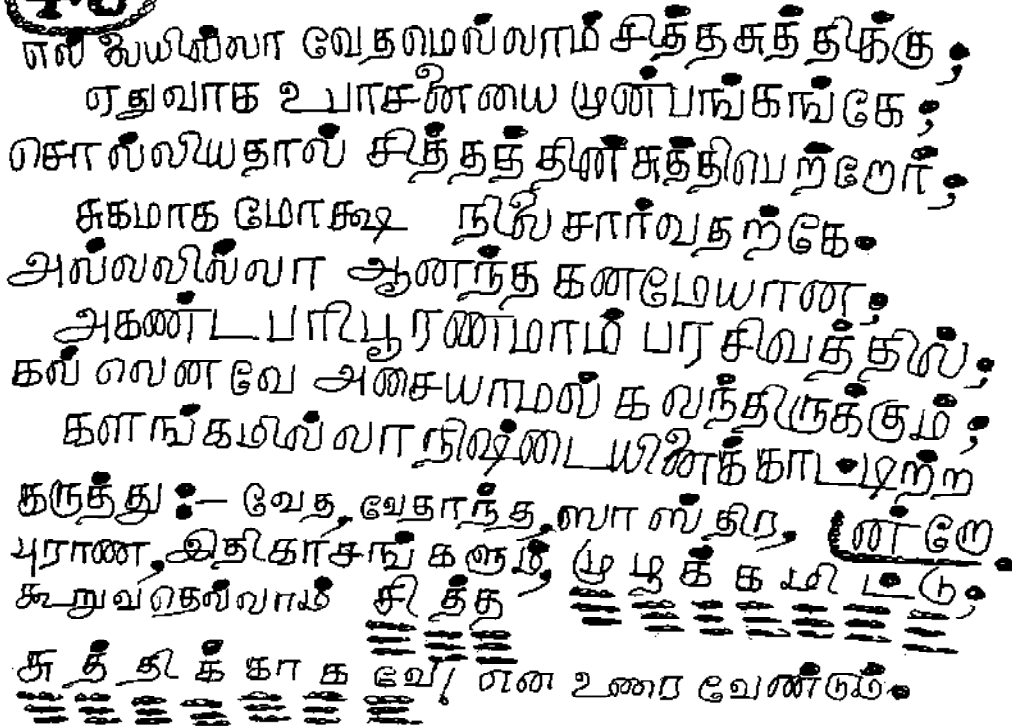 எல்லையில்லா வேதமெல்லாம் சித்தசுத்திக்கு;
ஏதுவாக உபாசனையை முன்பங்கங்கே;
சொல்லியதால் சித்தத்தின் சுத்திபெற்றோர்,
சுகமாக மோக்ஷ நிலை சார்வதற்கே.
அல்லலில்லா ஆனந்த கனமேயான,
அகண்ட பரிபூரணமாம் பரசிவத்தில்,
கல் லெனவே அசையாமல் கலந்திருக்கும்,
களங்கமில்லா நிஷ்டையினைக் காட்டிற்ற
கருத்து :- வேத, வேதாந்த, ஸாஸ்திர, னன்றே.
புராண, இதிகாசங்களும், முழக்கமிட்டு,
கூறுவதெல்லாம் சித்த
சுத்திக்காகவே! என உணர வேண்டும்.